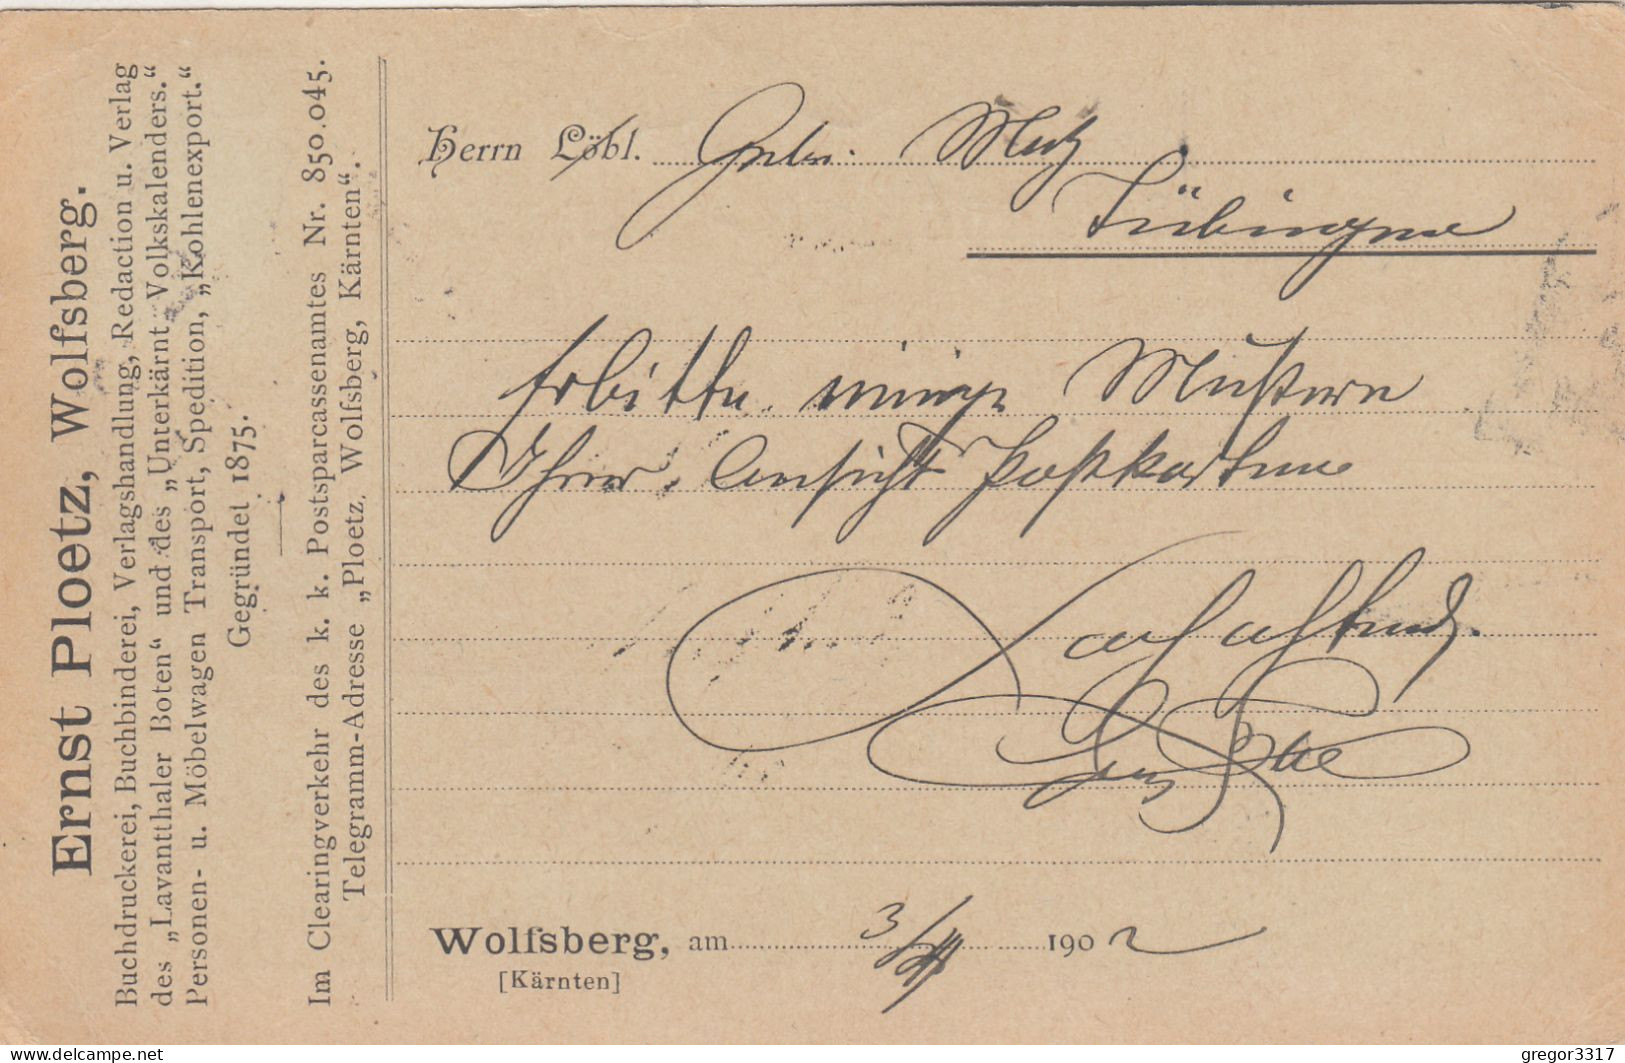 Ernst Ploetz, Wolfsberg.
Buchdruckerei, Buchbinderei, Verlagshandlung, Redaction u. Verlag
des „Lavantthaler Boten“ und des „Unterkärnt. Volkskalenders.“
Personen- u. Möbelwagen Transport, Spedition, „Kohlenexport.“
Gegründet 1875.
Im Clearingverkehr des k. k. Postsparcassenamtes Nr. 850.045.
Telegramm-Adresse „Ploetz, Wolfsberg, Kärnten“.
Herrn Löbl. Gebr. Metz
Tübingen
Erbitte einige Mustern
Ihrer Ansicht Postkarten
Hochachtend
Wolfsberg, am 3/ 1902
[Kärnten]
gregor3317